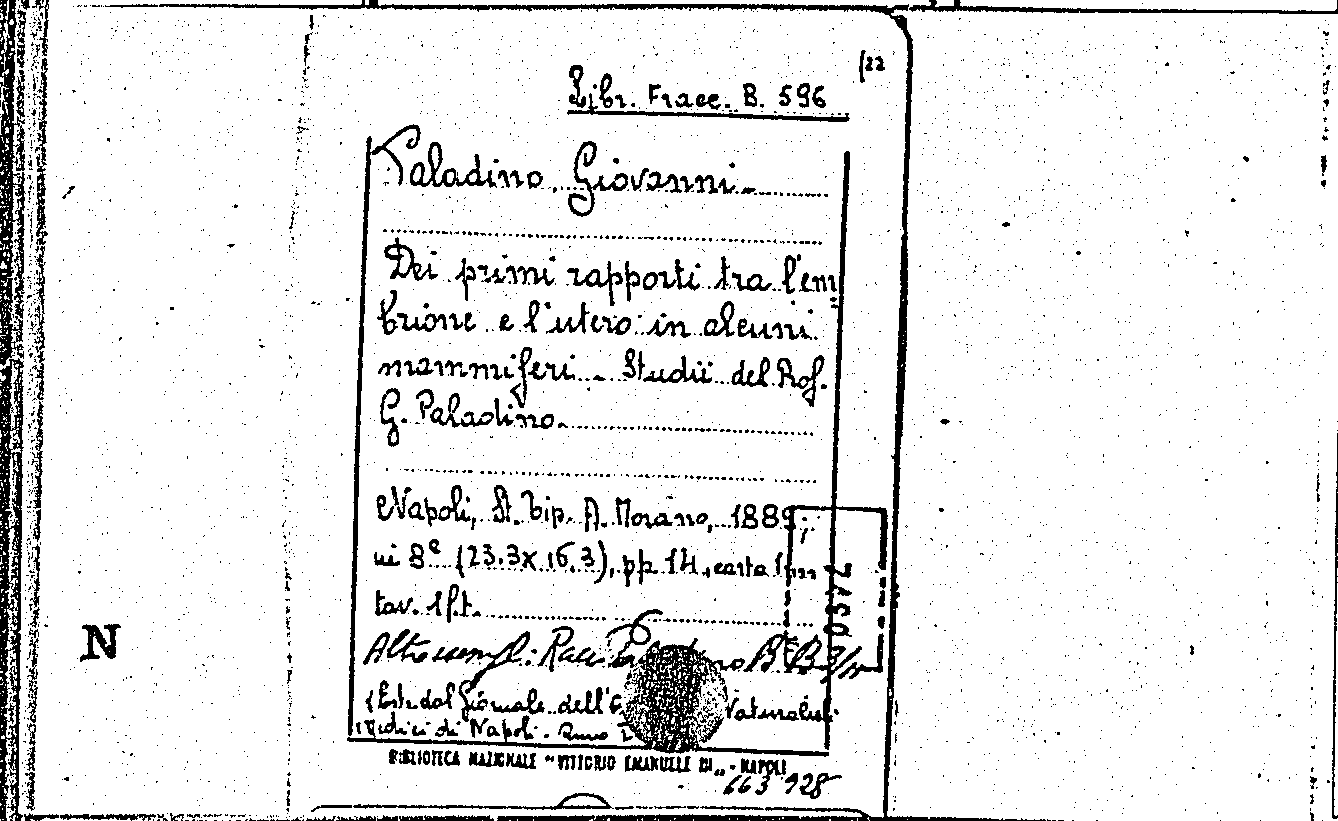 (22
Libr. Frace. B. 596
Paladino Giovanni
Dei primi rapporti tra l'em=
brione e l'utero in alcuni
mammiferi. Studii del Prof.
G. Paladino.
Napoli, St. tip. A. Morano, 1889;
in 8º (23.3x16.3), pp. 14, carta 1
tav. 1 f.t.
Altro esempl: Racc.
(Estr. dal Giornale dell' Naturalisti
Medici di Napoli. Anno
BIBLIOTECA NAZIONALE "VITTORIO EMANUELE III" - NAPOLI
663 928
N